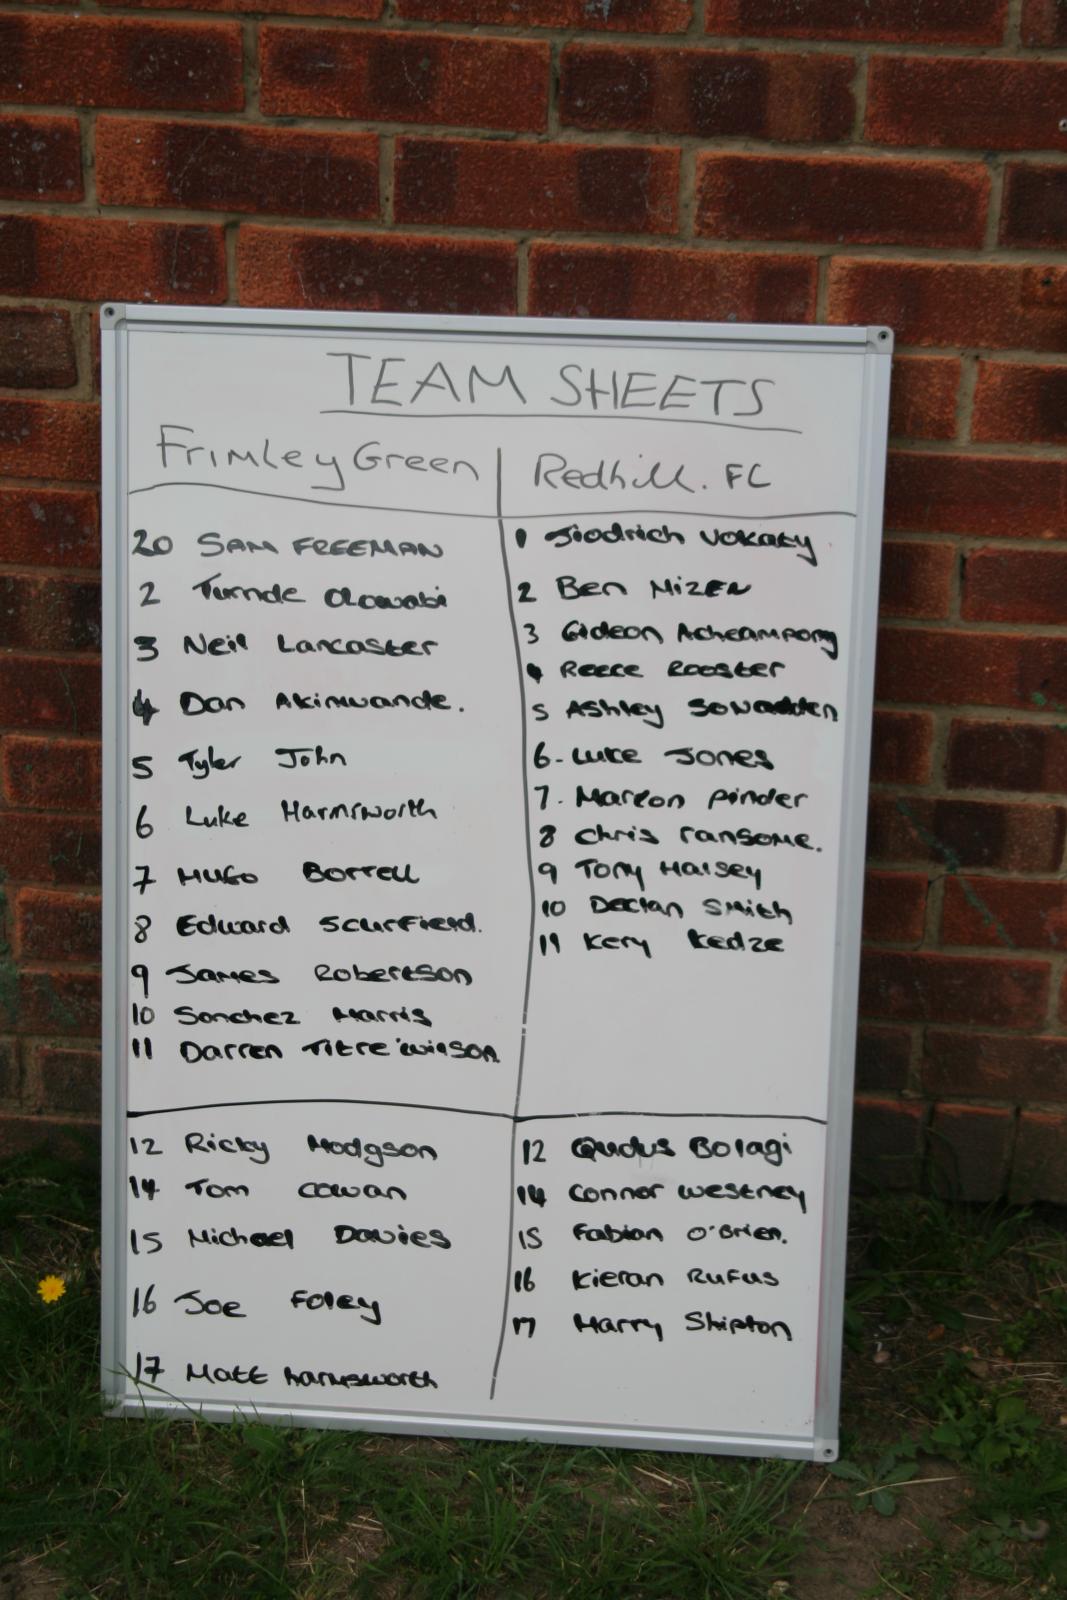 TEAM SHEETS
Frimley Green
20 SAM FREEMAN
2 Tunde Olowabi
3 Neil Lancaster
4 Dan Akinwande.
5 Tyler John
6 Luke Harmsworth
7 HUGO Borrell
8 Edward Scurfield.
9 James Robertson
10 Sanchez Harris
11 Darren Titre
12 Ricky Hodgson
14 Tom Cowan
15 Michael Davies
16 Joe Foley
17 Matt harmsworth
Redhill. FC
1 Jiodrich Vokaty
2 Ben MizEN
3 Gideon Acheampong
4 Reece Rooster
5 Ashley
6- Luke Jones
7. Marlon pinder
8 Chris ransome.
9 Tony Halsey
10 Declan Smith
11 Kery Kedze
12 Qudus Bolagi
14 Connor westney
15 Fabian O'Brien.
16 Kieran Rufus
17 Harry Shipton